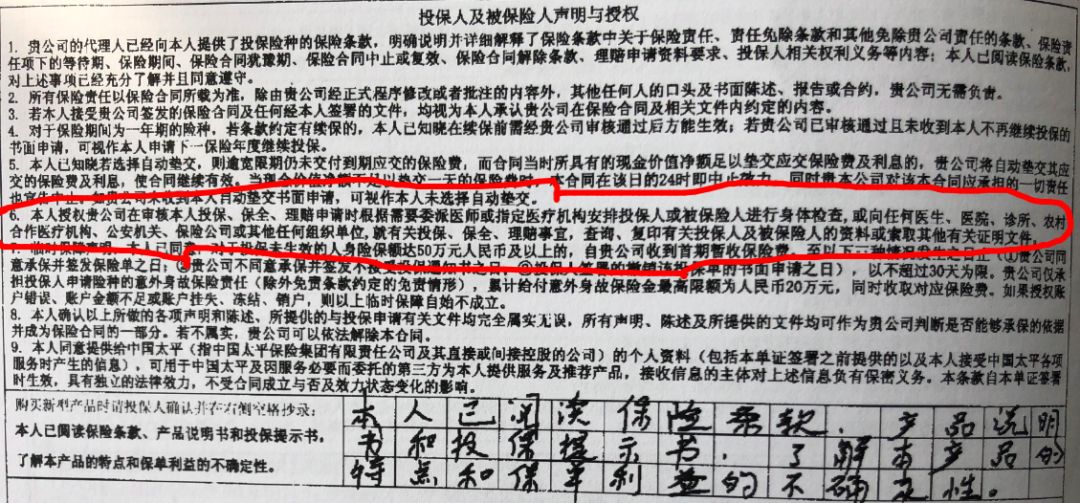 投保人及被保险人声明与授权
1. 贵公司的代理人已经向本人提供了投保险种的保险条款，明确说明并详细解释了保险条款中关于保险责任、责任免除条款和其他免除贵公司责任的条款、保险责
任项下的等待期、保险期间、保险合同犹豫期、保险合同中止或复效、保险合同解除条款、理赔申请资料要求、投保人相关权利义务等内容；本人已阅读保险条款，
对上述事项已经充分了解并且同意遵守。
2. 所有保险责任以保险合同所载为准，除由贵公司经正式程序修改或者批注的内容外，其他任何人的口头及书面陈述、报告或合约，贵公司无需负责。
3. 若本人接受贵公司签发的保险合同及任何经本人签署的文件，均视为本人承认贵公司在保险合同及相关文件内约定的内容。
4. 对于保险期间为一年期的险种，若条款约定有续保的，本人已知晓在续保前需经贵公司审核通过后方能生效；若贵公司已审核通过且未收到本人不再继续投保的
书面申请，可视作本人申请下一保险年度继续投保。
5. 本人已知晓若选择自动垫交，则逾宽限期仍未交付到期应交的保险费，而合同当时所具有的现金价值净额足以垫交应交保险费及利息的，贵公司将自动垫交其应
交的保险费及利息，使合同继续有效。当现金价值净额不足以垫交一天的保险费时，本合同在该日的24时即中止效力，同时贵本公司对该本合同应承担的一切责任
贵公司未收到本人自动垫交书面申请，可视作本人未选择自动垫交。
6. 本人授权贵公司在审核本人投保、保全、理赔申请时根据需要委派医师或指定医疗机构安排投保人或被保险人进行身体检查，或向任何医生、医院、诊所、农村
合作医疗机构、公安机关、保险公司或其他任何组织单位，就有关投保、保全、理赔事宜，查询、复印有关投保人及被保险人的资料或索取其他有关证明文件。
本人已同意，对于投保未生效的人身险保额达50万元人民币及以上的，自贵公司收到首期暂收保险费，至以下一种情况发生之日止（①贵公司同
意承保并签发保险单之日；②贵公司不同意承保并签发不接受投保通知书之日；③投保人签署的撤销该投保单的书面申请之日），以不超过30天为限。贵公司仅承
担投保人申请险种的意外身故保险责任（除外免责条款约定的免责情形），累计给付意外身故保险金最高限额为人民币20万元，同时收取对应保险费。如果授权账
户错误、账户金额不足或账户挂失、冻结、销户，则以上临时保障自始不成立。
8. 本人确认以上所做的各项声明和陈述、所提供的与投保申请有关文件均完全属实无误，所有声明、陈述及所提供的文件均可作为贵公司判断是否能够承保的依据
并成为保险合同的一部分。若不属实，贵公司可以依法解除本合同。
9. 本人同意提供给中国太平（指中国太平保险集团有限责任公司及其直接或间接控股的公司）的个人资料（包括本单证签署之前提供的以及本人接受中国太平各项
服务时产生的信息），可用于中国太平及因服务必要而委托的第三方为本人提供服务及推荐产品，接收信息的主体对上述信息负有保密义务。本条款自本单证签署
时生效，具有独立的法律效力，不受合同成立与否及效力状态变化的影响。
购买新型产品时请投保人确认并在右侧空格抄录：
本人已阅读保险条款、产品说明书和投保提示书，
了解本产品的特点和保单利益的不确定性。
本人已阅读保险条款、产品说明
书和投保提示书，了解本产品的
特点和保单利益的不确定性。